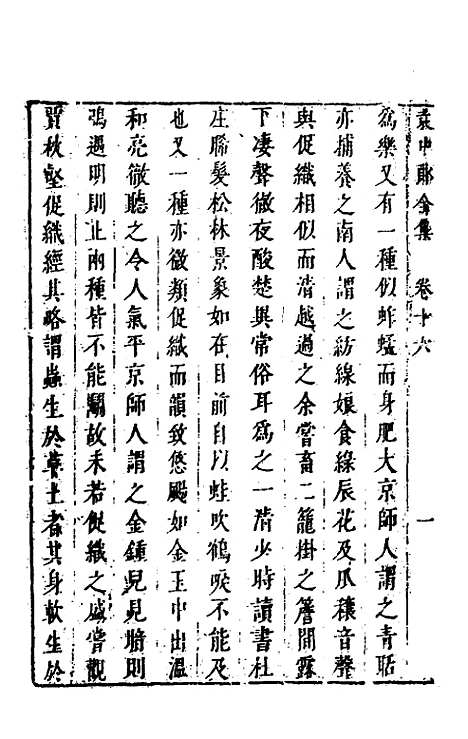 袁中郎全集　卷十六　一
為樂又有一種似蚱蜢而身肥大京師人謂之青聒
亦捕養之南人謂之紡線娘食綠辰花及瓜穰音聲
與促織相似而清越過之余嘗畜二籠掛之簷間露
下凄聲徹夜酸楚異常俗耳為之一清少時讀書杜
庄晞髮松林景象如在目前自以蛙吹鶴唳不能及
也又一種亦微類促織而韻致悠颺如金玉中出溫
和亮徹聽之令人氣平京師人謂之金鍾兒見暗則
鳴遇明則止兩種皆不能鬭故未若促織之盛嘗觀
賈秋壑促織經其略謂蟲生於草土者其身軟生於